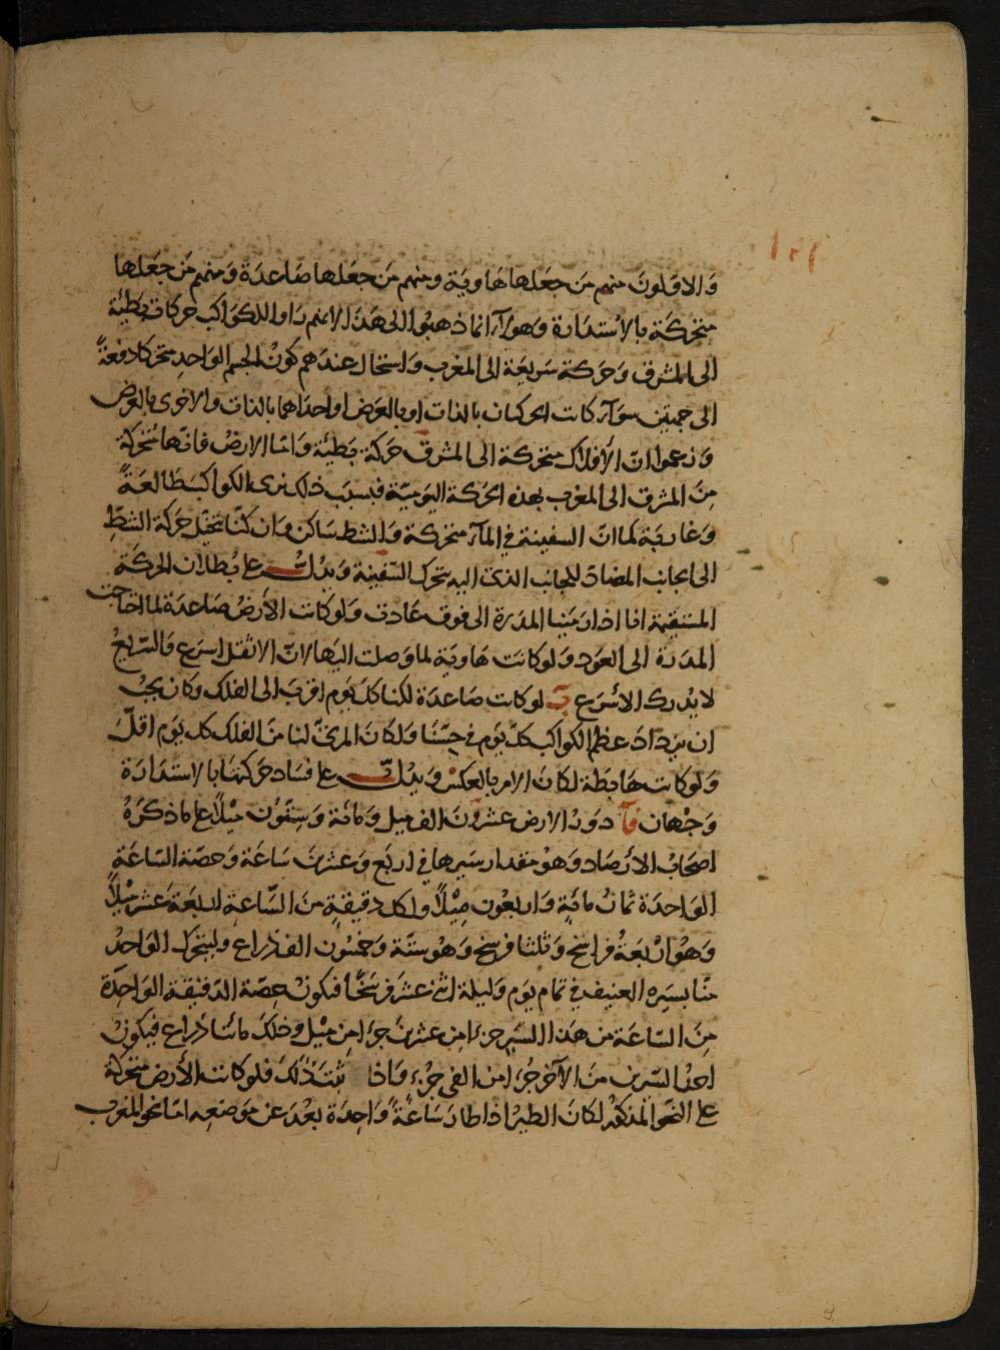 ١٢١
والاولون منهم من جعلها هاوية ومنهم من جعلها صاعدة ومنهم من جعلها
متحركة بالاستدارة وهؤلاء انما ذهبوا الى هذا لانهم راوا للكواكب حركات بطيئة
الى المشرق وحركة سريعة الى المغرب واستحال عندهم كون الجسم الواحد متحركا دفعة
الى جهتين سواء كانت الحركتان بالذات او بالعرض او احداها بالذات والاخرى بالعرض
وزعموا ان الأفلاك متحركة الى المشرق حركة بطيئة واما الارض فانها متحركة
من المشرق الى المغرب بهذه الحركة اليومية فبسبب ذلك نرى الكواكب طالعة
وغاربة كما ان السفينة في الماء متحركة والشط ساكن وان كنا نتخيل حركة الشط
الى الجانب المضاد للجانب الذي اليه تتحرك السفينة ويدل على بطلان الحركة
المستقيمة انا اذا رمينا المدرة الى فوق عادت ولو كانت الأرض صاعدة لما احتاجت
المدرة الى العود ولو كانت هاوية لما وصلت اليها لان الاثقل اسرع والسريع
لا يدرك الاسرع ب لو كانت صاعدة لكنا كل يوم اقرب الى الفلك وكان يجب
ان يزداد عظم الكواكب كل يوم في حسنا ولكان المرئي لنا من الفلك كل يوم اقل
ولو كانت هابطة لكان الامر بالعكس ويدل على فساد حركتها بالاستدارة
وجهان آ دور الارض عشرون الف ميل ومائة وستون ميلا على ما ذكره
اصحاب الارصاد وهو مقدار سيرها في اربع وعشرين ساعة وحصة الساعة
الواحدة ثمان مائة واربعون ميلا ولكل دقيقة من الساعة اربعة عشر ميلا
وهو اربعة فراسخ وثلثا فرسخ وهو ستة وخمسون الف ذراع وليتحرك الواحد
منا بسيره العنيف في تمام يوم وليلة اثني عشر فرسخا فيكون حصة الدقيقة الواحدة
من الساعة من هذا السير جزءا من عشرين جزءا من ميل وذلك مائتا ذراع فيكون
احد السيرين من الآخر جزءا من الفي جزء واذا ثبت ذلك فلو كانت الأرض متحركة
على النحو المذكور لكان الطير اذا طار ساعة واحدة بعد عن موضعه اما نحو المغرب